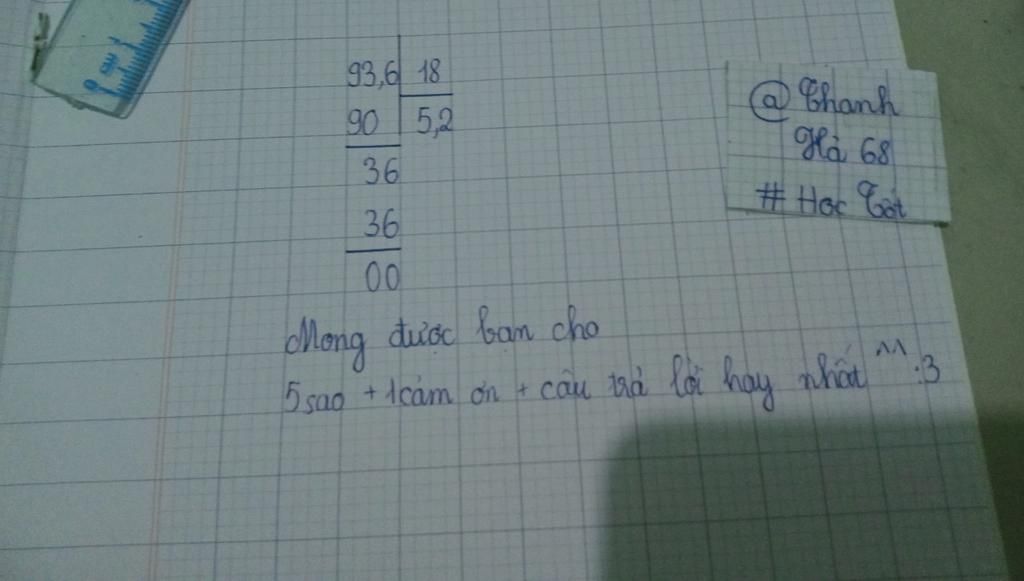 93,6 18
90 5,2
36
36
00
@ Thanh
Hà 68
# Học Tốt
Mong được bạn cho
5 sao + 1 cảm ơn + câu trả lời hay nhất ^^ :3